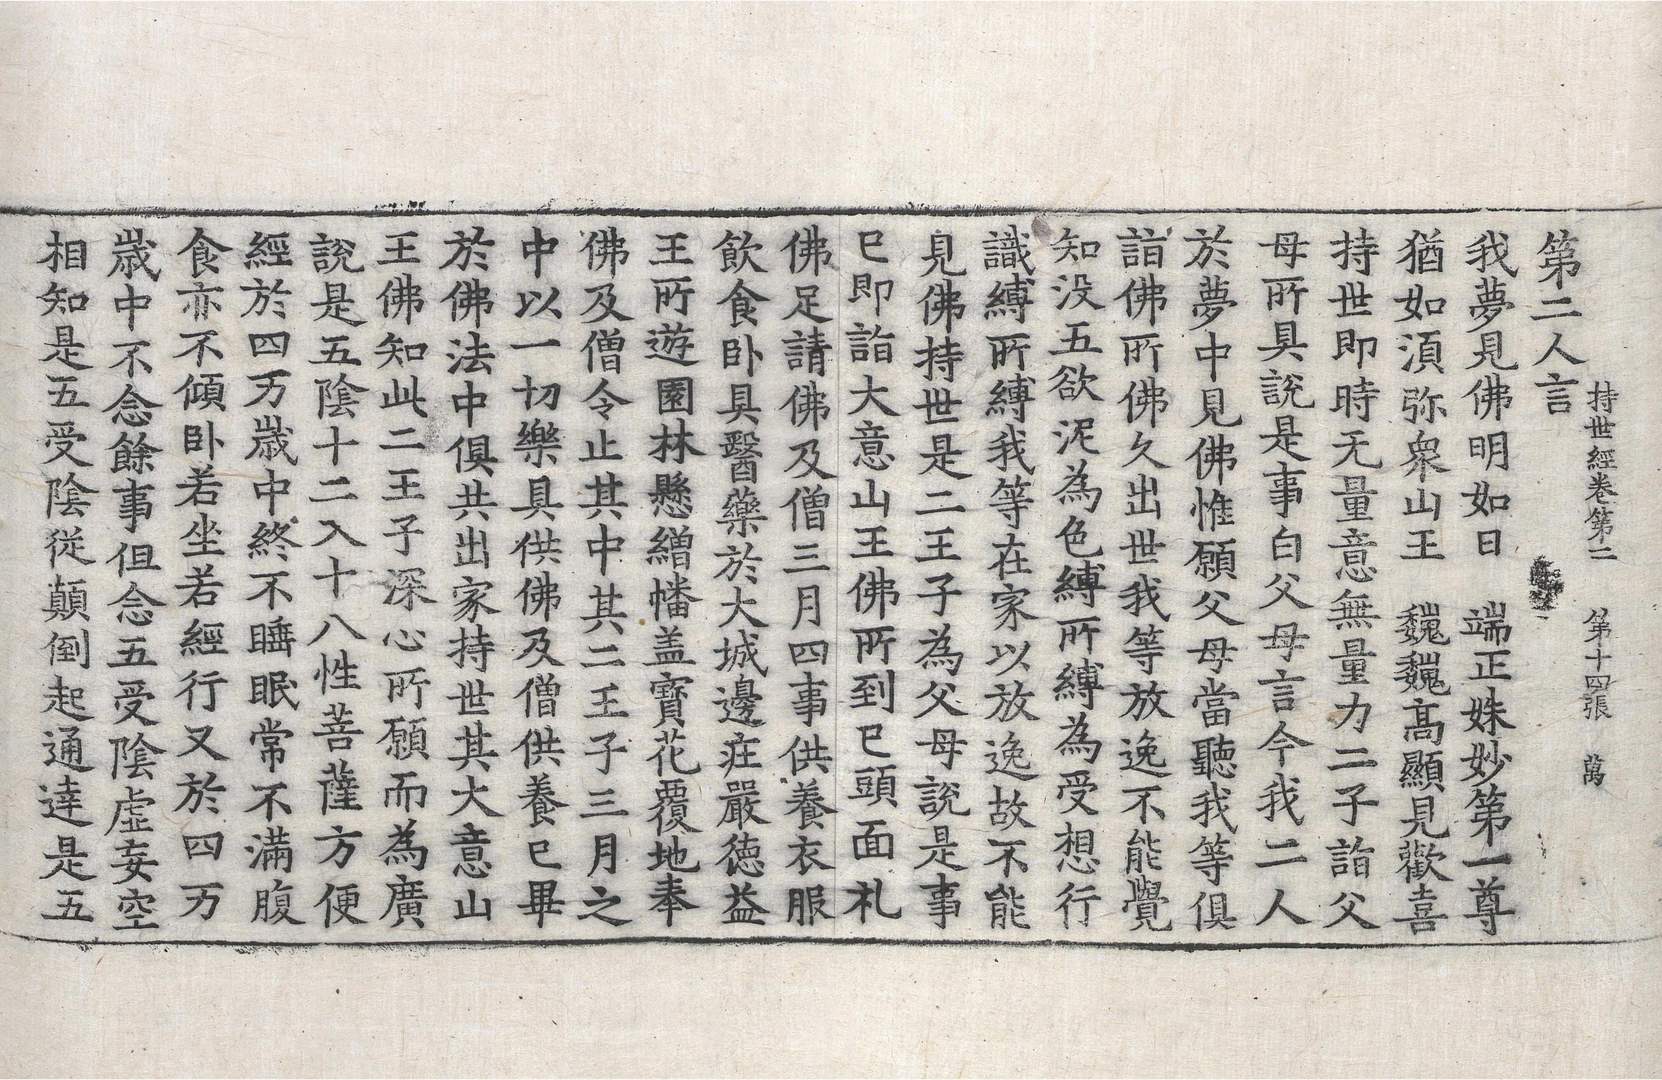 持世經卷第二 第十四張 萬
第二人言
我夢見佛明如日 端正姝妙第一尊
猶如湏弥衆山王 巍巍髙顯見歡喜
持世即時无量意無量力二子詣父
母所具說是事白父母言今我二人
於夢中見佛惟願父母當聽我等俱
詣佛所佛久出世我等放逸不能覺
知没五欲泥為色縛所縛為受想行
識縛所縛我等在家以放逸故不能
見佛持世是二王子為父母說是事
已即詣大意山王佛所到已頭面礼
佛足請佛及僧三月四事供養衣服
飲食卧具醫藥於大城邊庄嚴德益
王所遊園林懸繒幡盖寶花覆地奉
佛及僧令止其中其二王子三月之
中以一切樂具供佛及僧供養已畢
於佛法中俱共出家持世其大意山
王佛知此二王子深心所願而為廣
說是五陰十二入十八性菩薩方便
經於四万歲中終不睡眠常不滿腹
食亦不傾卧若坐若經行又於四万
歲中不念餘事但念五受陰虛妄空
相知是五受陰從顛倒起通達是五